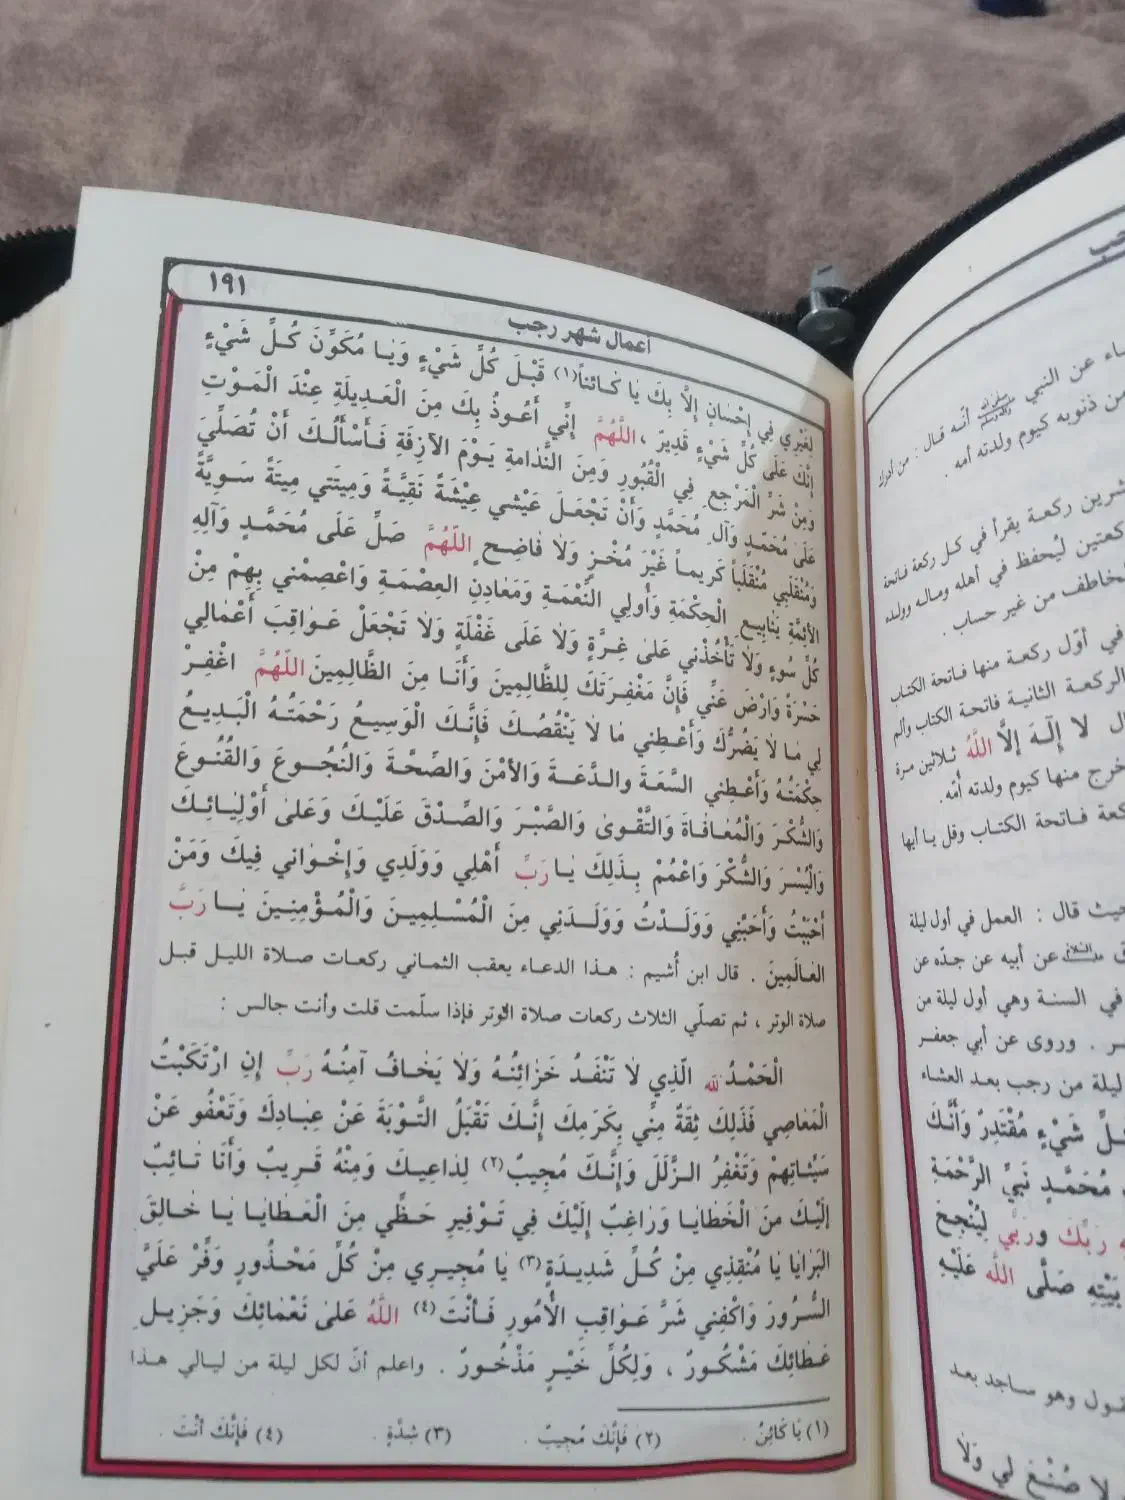 ١٩١
أعمال شهر رجب
لِغَيْرِي فِي إِحْسَانٍ إِلَّا بِكَ يَا كَائِناً(١) قَبْلَ كُلِّ شَيْءٍ وَيَا مُكَوِّنَ كُلِّ شَيْءٍ
إِنَّكَ عَلَى كُلِّ شَيْءٍ قَدِيرٌ ، اللَّهُمَّ إِنِّي أَعُوذُ بِكَ مِنَ الْعَدِيلَةِ عِنْدَ الْمَوْتِ
وَمِنْ شَرِّ الْمَرْجِعِ فِي الْقُبُورِ وَمِنَ النَّدَامَةِ يَوْمَ الآزِفَةِ فَأَسْأَلُكَ أَنْ تُصَلِّيَ
عَلَى مُحَمَّدٍ وَآلِ مُحَمَّدٍ وَأَنْ تَجْعَلَ عَيْشِي عِيْشَةً نَقِيَّةً وَمِيتَتِي مِيتَةً سَوِيَّةً
وَمُنْقَلَبِي مُنْقَلَباً كَرِيماً غَيْرَ مُخْزٍ وَلَا فَاضِحٍ اللَّهُمَّ صَلِّ عَلَى مُحَمَّدٍ وَآلِهِ
الأَئِمَّةِ يَنَابِيعِ الْحِكْمَةِ وَأُولِي النِّعْمَةِ وَمَعَادِنِ العِصْمَةِ وَاعْصِمْنِي بِهِمْ مِنْ
كُلِّ سُوءٍ وَلَا تَأْخُذْنِي عَلَى غِرَّةٍ وَلَا عَلَى غَفْلَةٍ وَلَا تَجْعَلْ عَوَاقِبَ أَعْمَالِي
حَسْرَةً وَارْضَ عَنِّي فَإِنَّ مَغْفِرَتَكَ لِلظَّالِمِينَ وَأَنَا مِنَ الظَّالِمِينَ اللَّهُمَّ اغْفِرْ
لِي مَا لَا يَضُرُّكَ وَأَعْطِنِي مَا لَا يَنْقُصُكَ فَإِنَّكَ الْوَسِيعُ رَحْمَتُهُ الْبَدِيعُ
حِكْمَتُهُ وَأَعْطِنِي السَّعَةَ والدَّعَةَ وَالأَمْنَ وَالصِّحَّةَ وَالنُّجُوعَ وَالْقُنُوعَ
وَالشُّكْرَ وَالْمُعَافَاةَ وَالتَّقْوَى وَالصَّبْرَ وَالصِّدْقَ عَلَيْكَ وَعَلَى أَوْلِيَائِكَ
وَالْيُسْرَ وَالشُّكْرَ وَاعْمُمْ بِذَلِكَ يَا رَبِّ أَهْلِي وَوَلَدِي وَإِخْوَانِي فِيكَ وَمَنْ
أَحْبَبْتُ وَأَحَبَّنِي وَوَلَدْتُ وَوَلَدَنِي مِنَ الْمُسْلِمِينَ وَالْمُؤْمِنِينَ يَا رَبَّ
العَالَمِينَ . قال ابن أُشيم : هذا الدعاء يعقب الثماني ركعات صلاة الليل قبل
صلاة الوتر ، ثم تصلّي الثلاث ركعات صلاة الوتر فإذا سلّمت قلت وأنت جالس :
الْحَمْدُ لله الَّذِي لَا تَنْفَدُ خَزَائِنُهُ وَلَا يَخَافُ آمِنُهُ رَبِّ إِنِ ارْتَكَبْتُ
الْمَعَاصِي فَذَلِكَ ثِقَةٌ مِنِّي بِكَرَمِكَ إِنَّكَ تَقْبَلُ التَّوْبَةَ عَنْ عِبَادِكَ وَتَعْفُو عَنْ
سَيِّئَاتِهِمْ وَتَغْفِرُ الزَّلَلَ وَإِنَّكَ مُجِيبٌ(٢) لِدَاعِيكَ وَمِنْهُ قَرِيبٌ وَأَنَا تَائِبٌ
إِلَيْكَ مِنَ الْخَطَايَا وَرَاغِبٌ إِلَيْكَ فِي تَوْفِيرِ حَظِّي مِنَ الْعَطَايَا يَا خَالِقَ
البَرَايَا يَا مُنْقِذِي مِنْ كُلِّ شَدِيدَةٍ(٣) يَا مُجِيرِي مِنْ كُلِّ مَحْذُورٍ وَفِّرْ عَلَيَّ
السُّرُورَ وَاكْفِنِي شَرَّ عَوَاقِبِ الأُمُورِ فَأَنْتَ(٤) اللَّهُ عَلَى نَعْمَائِكَ وَجَزِيلِ
عَطَائِكَ مَشْكُورٌ ، وَلِكُلِّ خَيْرٍ مَذْخُورٌ . واعلم أنّ لكل ليلة من ليالي هذا
(١) يَا كَائِنُ . (٢) فَإِنَّكَ مُجِيبٌ . (٣) شِدَّةٍ . (٤) فَإِنَّكَ أَنْتَ .
عن النبي أنّه قال : من أدرك
من ذنوبه كيوم ولدته أمه .
ركعة يقرأ في كل ركعة فاتحة
ليُحفظ في أهله وماله وولده
من غير حساب .
في أوّل ركعة منها فاتحة الكتاب
الركعة الثانية فاتحة الكتاب وألم
لَا إِلَهَ إِلَّا اللَّهُ ثلاثين مرة
خرج منها كيوم ولدته أُمّه.
فاتحة الكتاب وقل يا أيها
حيث قال : العمل في أول ليلة
عن أبيه عن جدّه عن
في السنة وهي أول ليلة من
. وروى عن أبي جعفر
ليلة من رجب بعد العشاء
شَيْءٍ مُقْتَدِرٌ وَأَنَّكَ
مُحَمَّدٍ نَبِيِّ الرَّحْمَةِ
رَبِّكَ ورَبِّي لِيُنْجِحَ
بَيْتِهِ صَلَّى اللَّه عَلَيْهِ
وهو ساجد بعد
لا صُنْعَ لِي وَلَا